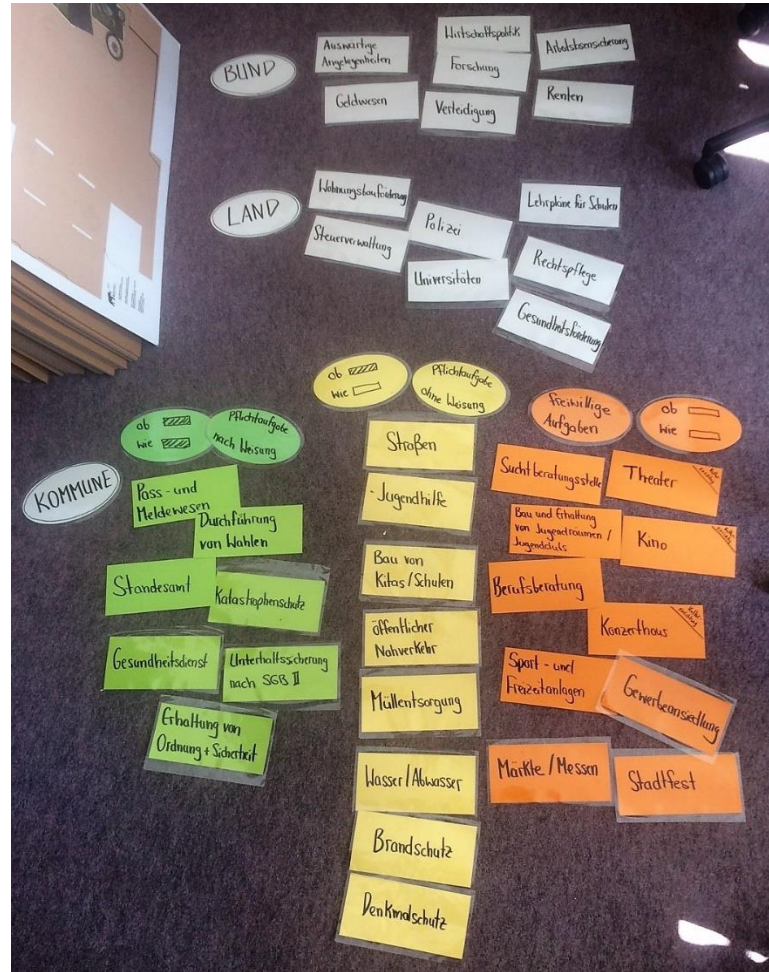 BUND
Auswärtige
Angelegenheiten
Wirtschaftspolitik
Arbeitslosensicherung
Forschung
Geldwesen
Verteidigung
Renten
LAND
Wohnungsbauförderung
Lehrpläne für Schulen
Polizei
Steuerverwaltung
Rechtspflege
Universitäten
Gesundheitsförderung
KOMMUNE
ob
wie
Pflichtaufgabe
nach Weisung
Pass- und
Meldewesen
Durchführung
von Wahlen
Standesamt
Katastrophenschutz
Gesundheitsdienst
Unterhaltssicherung
nach SGB II
Erhaltung von
Ordnung + Sicherheit
ob
wie
Pflichtaufgabe
ohne Weisung
Straßen
- Jugendhilfe
Bau von
Kitas/Schulen
öffentlicher
Nahverkehr
Müllentsorgung
Wasser/Abwasser
Brandschutz
Denkmalschutz
freiwillige
Aufgaben
ob
wie
Suchtberatungsstelle
Theater
Bau und Erhaltung
von Jugendräumen /
Jugendclubs
Kino
Berufsberatung
Konzerthaus
Sport- und
Freizeitanlagen
Gewerbeansiedlung
Märkte / Messen
Stadtfest